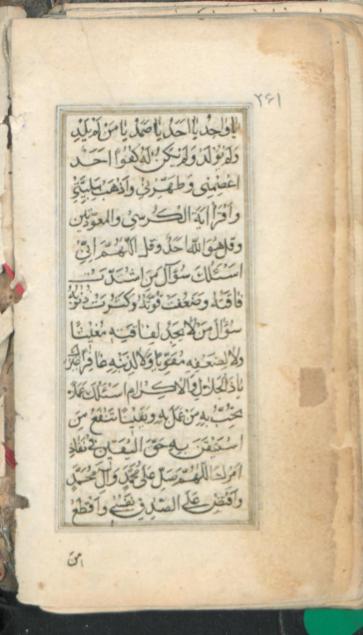 ۲۶۱
یا واحد یا احد یا صمد یا من لم یلد
ولم یولد ولم یکن له کفوا احد
اعصمنی وطهرنی واذهب ببلیتی
واقرأ ایة الکرسی والمعوذتین
وقل هو الله احد وقل اللهم انی
اسئلک سؤال من اشتدت
فاقته وضعفت قوته وکثرت ذنوبه
سؤال من لا یجد لفاقته مغیثا
ولا لضعفه مقویا ولا لذنبه غافرا غیرک
یا ذا الجلال والاکرام اسئلک عملا
تحب به من عمل به ویقینا تنفع من
استیقن به حق الیقین فی نفاذ
امرک اللهم صل علی محمد وآل محمد
واقبض علی الصدق نفسی واقطع
من